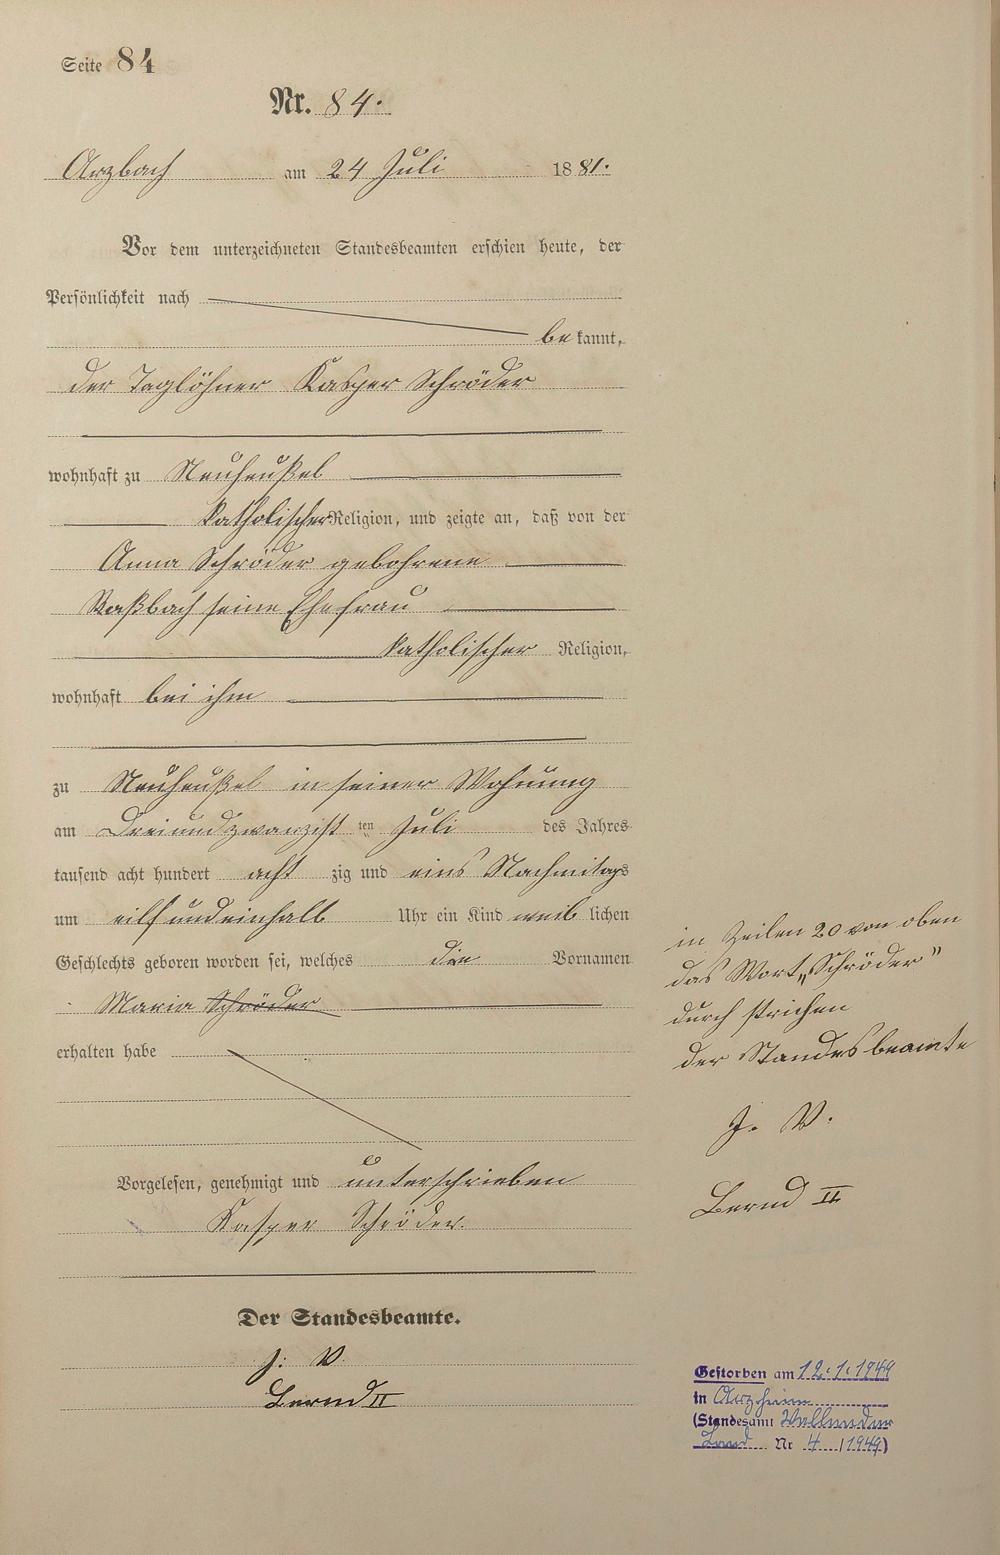 Seite 84
Nr. 84.
Arzbach am 24 Juli 1881.
Vor dem unterzeichneten Standesbeamten erschien heute, der
Persönlichkeit nach
bekannt,
der Taglöhner Kasper Schröder
wohnhaft zu Neuheußel
katholischer Religion, und zeigte an, daß von der
Anna Schröder gebohrene
Staßbach seine Ehefrau
katholischer Religion,
wohnhaft bei ihm
zu Neuheußel in seiner Wohnung
am Dreiundzwanzigst ten Juli des Jahres
tausend acht hundert acht zig und eins Nachmitags
um eilf und einhalb Uhr ein Kind weib lichen
Geschlechts geboren worden sei, welches die Vornamen
Maria Schröder
erhalten habe
Vorgelesen, genehmigt und unterschrieben
Kasper Schröder.
Der Standesbeamte.
J. V.
Bernd II
in Zeilen 20 von oben
das Wort „Schröder"
durch strichen
der Standesbeamte
J. V.
Bernd II
Gestorben am 12.1.1949
in Arzheim
(Standesamt Vallendar
Land Nr 4 / 1949)